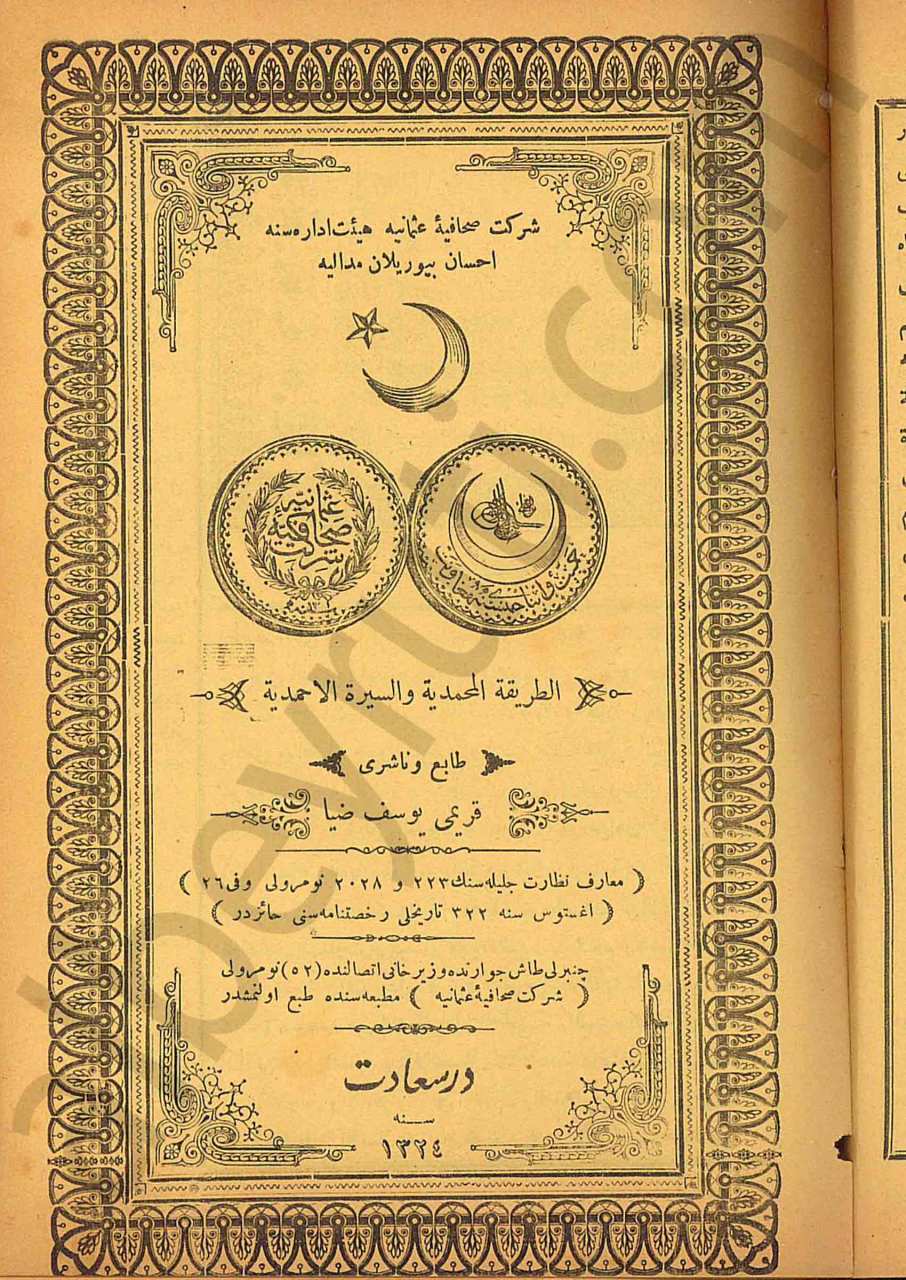 شركت صحافيهٔ عثمانيه هيئت اداره‌سنه
احسان بيوريلان مداليه
عثمانيه
صحافيهٔ
شركت
الطريقة المحمدية والسيرة الاحمدية
طابع وناشرى
قريمى يوسف ضيا
( معارف نظارت جليله‌سنك ٢٢٣ و ٢٠٢٨ نومرولى وفى ٢٦ )
( اغستوس سنه ٣٢٢ تاريخلى رخصتنامه‌سنى حائزدر )
چنبرلى طاش جوارنده وزير خانى اتصالنده (٥٢) نومرولى
( شركت صحافيهٔ عثمانيه ) مطبعه‌سنده طبع اولنمشدر
درسعادت
سنه
١٣٢٤